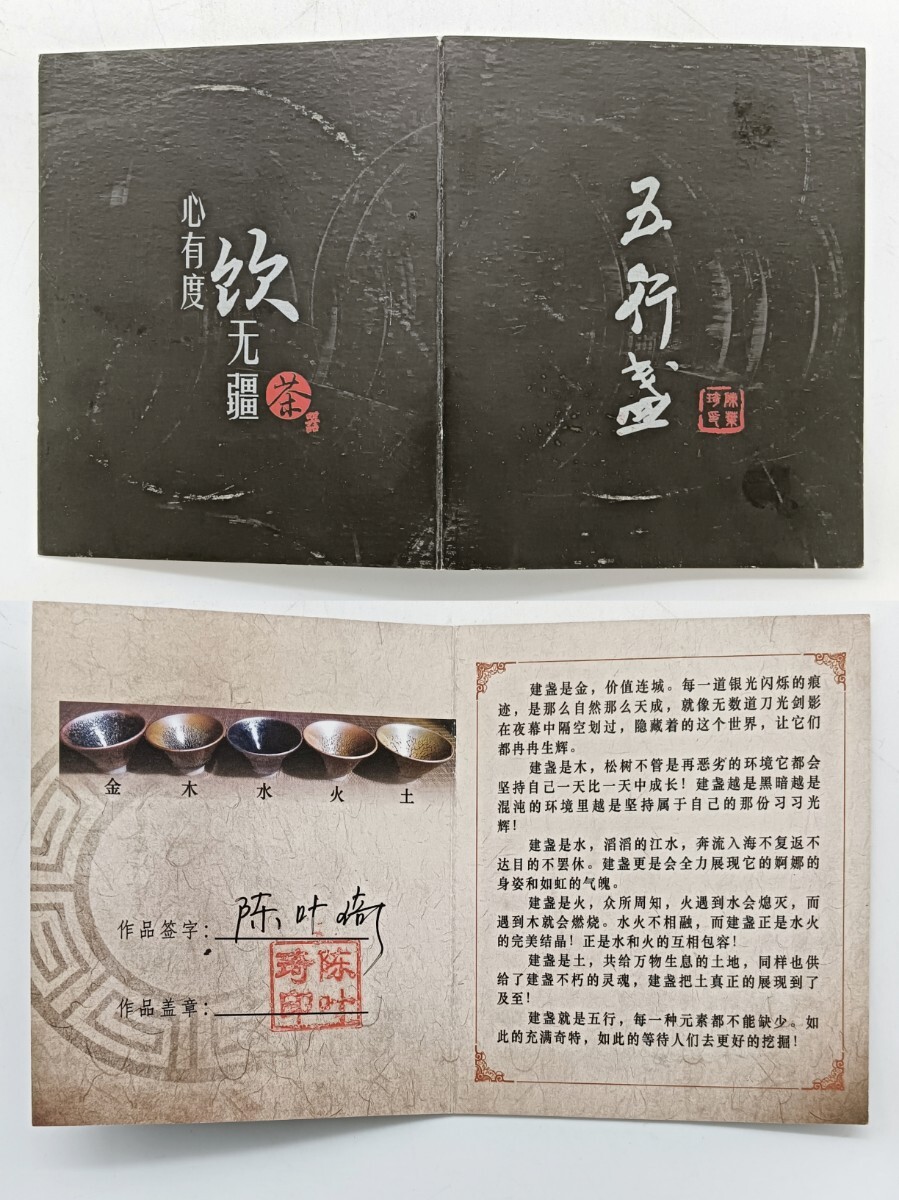 心有度
饮
无疆
茶
器
五行盏
陈叶
琦印
金 木 水 火 土
作品签字：陈叶琦
作品盖章：
陈叶
琦印
建盏是金，价值连城。每一道银光闪烁的痕
迹，是那么自然那么天成，就像无数道刀光剑影
在夜幕中隔空划过，隐藏着的这个世界，让它们
都冉冉生辉。
建盏是木，松树不管是再恶劣的环境它都会
坚持自己一天比一天中成长！建盏越是黑暗越是
混沌的环境里越是坚持属于自己的那份习习光
辉！
建盏是水，滔滔的江水，奔流入海不复返不
达目的不罢休。建盏更是会全力展现它的婀娜的
身姿和如虹的气魄。
建盏是火，众所周知，火遇到水会熄灭，而
遇到木就会燃烧。水火不相融，而建盏正是水火
的完美结晶！正是水和火的互相包容！
建盏是土，共给万物生息的土地，同样也供
给了建盏不朽的灵魂，建盏把土真正的展现到了
及至！
建盏就是五行，每一种元素都不能缺少。如
此的充满奇特，如此的等待人们去更好的挖掘！